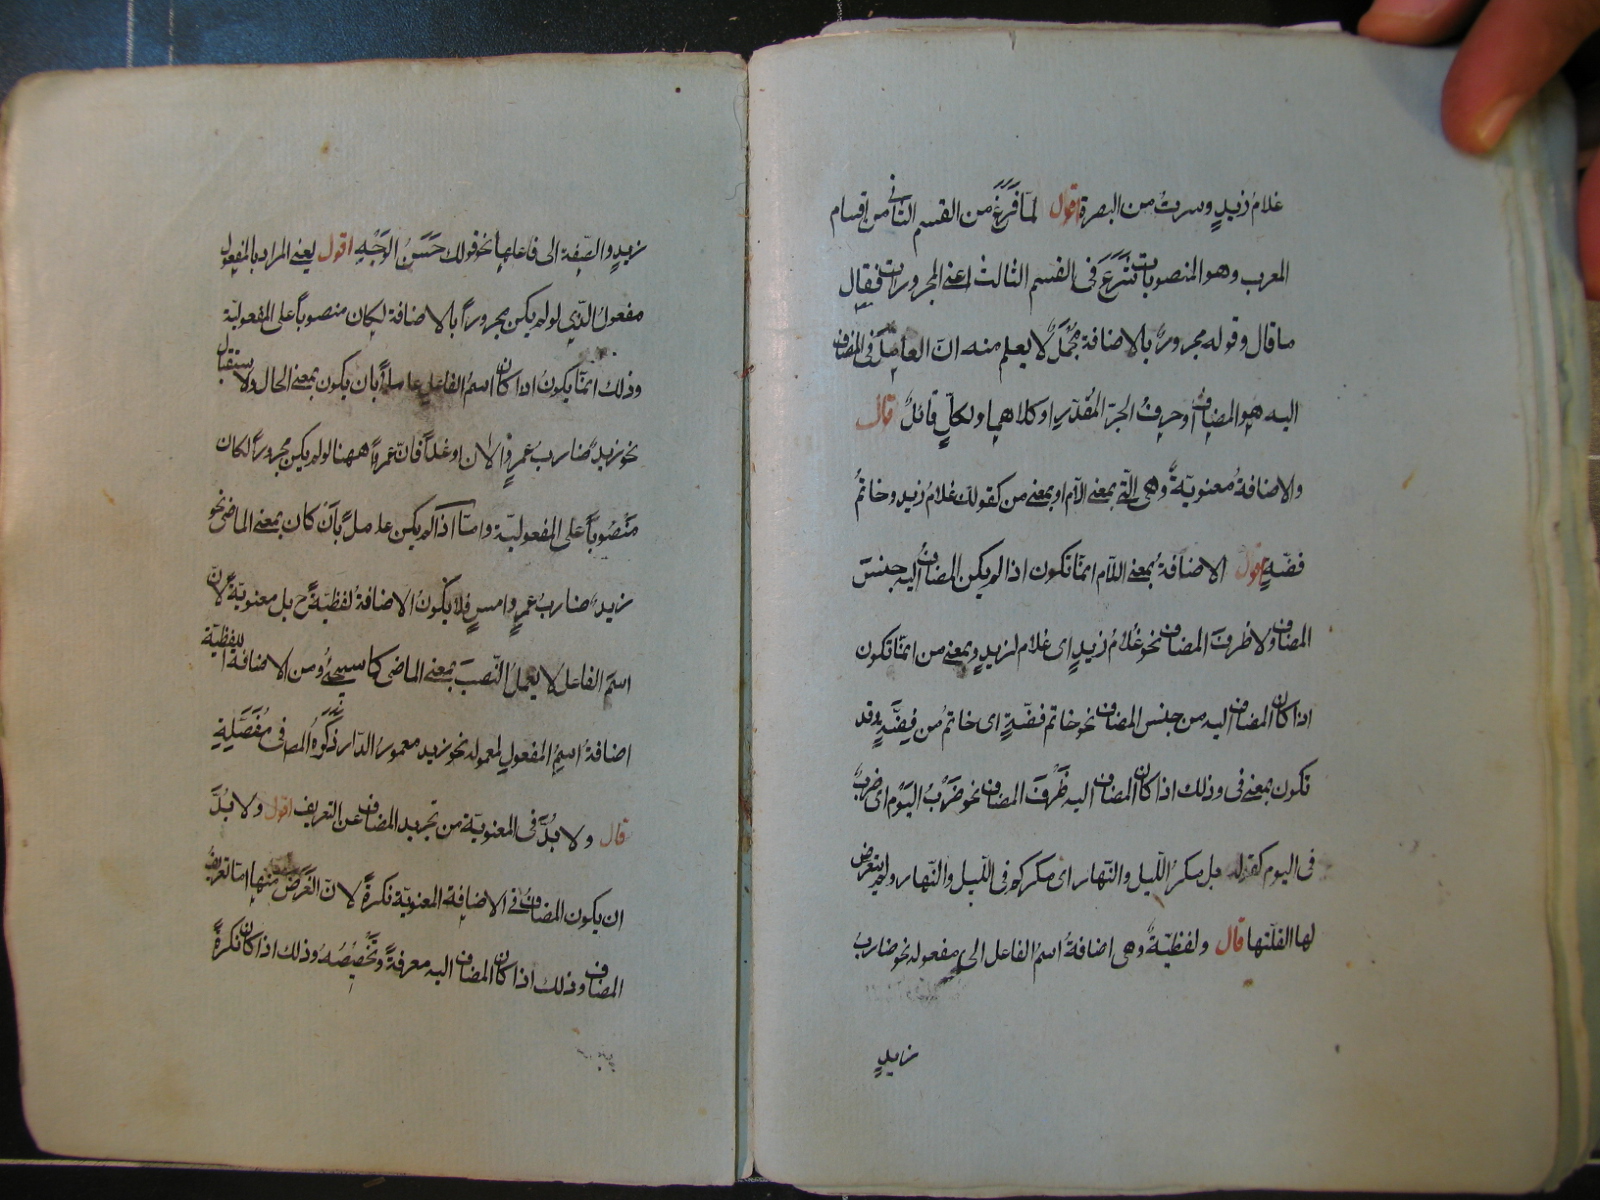 غلامُ زيدٍ وسرتُ من البصرة اقول لمّا فَرَغَ من القسم الثانى من اقسام
المعرب وهو المنصوبات شَرَعَ فى القسم الثالث اعنى المجرورات فقال
ما قال وقوله مجرورٌ بالاضافة مُجْمَلٌ لا يعلم منه انّ العامل فى المضاف
اليه هو المضاف او حرفُ الجرّ المُقدّرِ او كلاهما ولكلٍّ قائلٌ قال
والاضافةُ معنويّةٌ وهى التى بمعنى اللّام او بمعنى من كقولك غلامُ زيدٍ وخاتمُ
فضّةٍ اقول الاضافةُ بمعنى اللّام انمّا تكون اذا لم يكن المضافُ اليه جنسَ
المضاف ولا ظرفَ المضاف نحو غُلامُ زيدٍ اى غلام لزيدٍ وبمعنى من انمّا تكون
اذا كان المضاف اليه من جنس المضاف نحو خاتم فضّةٍ اى خاتمٌ من فِضَّةٍ وقد
تكون بمعنى فى وذلك اذا كان المضاف اليه ظَرْفَ المضاف نحو ضَرْبُ اليَوْم اى ضربٌ
فى اليوم كقوله بل مكرُ اللّيل والنّهار اى مكركم فى اللّيل والنّهار ولم يتعرض
لها لقلّتها قال ولفظيّةٌ وهى اضافةُ اسمُ الفاعل الى مفعوله نحو ضاربُ
زيدٍ
زيدٍ والصّفة الى فاعلها نحو قولك حَسَنُ الوَجْهِ اقول يعنى المراد بالمفعول
مفعولُ الّذى لو لم يكن مجروراً بالاضافة لكان منصوباً على المفعوليّة
وذلك انمّا يكونُ اذا كان اسمُ الفاعل عاملاً بان يكون بمعنى الحال والاستقبال
نحو زيدٌ ضاربُ عمرٍو الان او غداً فانّ عمرًوا ههنا لو لم يكن مجروراً لكان
مَنْصُوباً على المفعوليّة وامّا اذا لم يكن عاملاً بأن كان بمعنى الماضى نحو
زيدٌ ضاربُ عمرٍو امسِ فلا يكونُ الاضافةُ لفظيّةً ح بل معنويّةً لانّ
اسمَ الفاعل لا يعملُ النّصبَ بمعنى الماضى كما سيجئ ومن الاضافة اللفظيّة
اضافةُ اسمِ المفعولِ لمعموله نحو زيد معمورُ الدّار ذَكَرَهُ المص فى مُفَصَّلِهِ
قال ولا بُدَّ فى المعنويّة من تجريد المضاف عن التعريف اقول ولا بُدَّ
ان يكون المضاف فى الاضافة المعنويّة نكرةً لانّ الغَرَضَ منها امّا تعريفُ
المضاف وذلك اذا كان المضاف اليه معرفةً وتَخْصِيْصُه وذلك اذا كان نكرةً